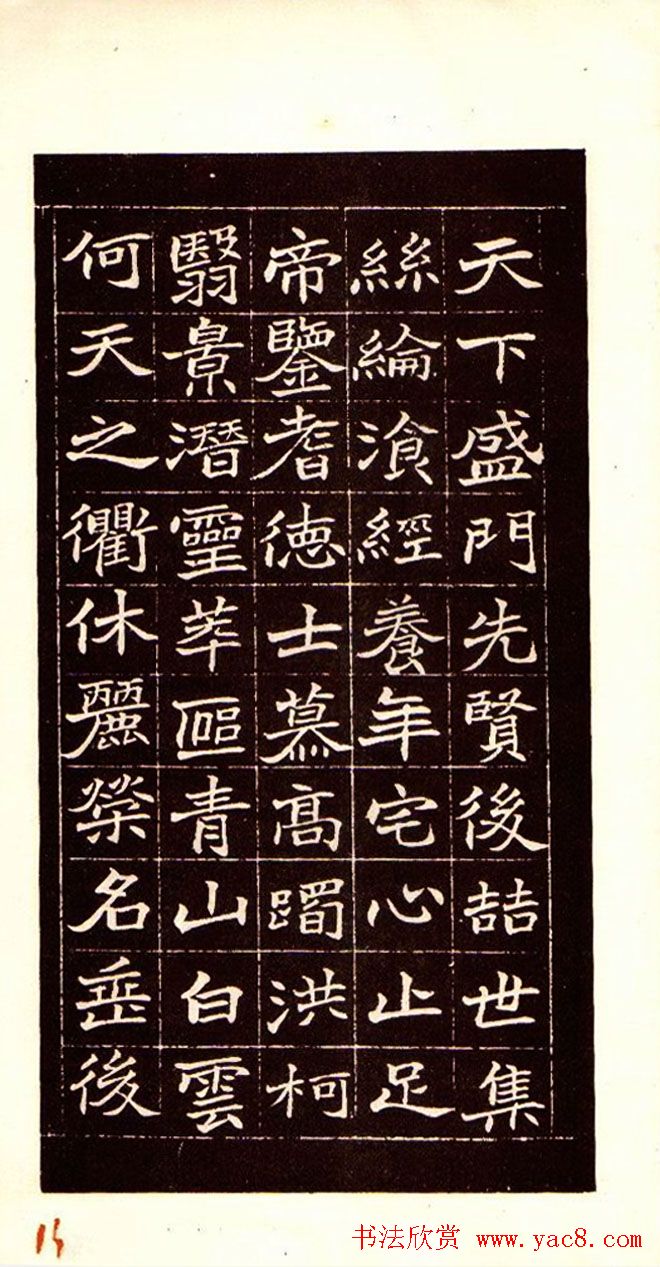 天下盛門先賢後喆世集
絲綸飡經養年宅心止足
帝鑒耆徳士慕髙躅洪柯
翳景潛靈萃區青山白雲
何天之衢休麗榮名垂後
15
书法欣赏 www.yac8.com